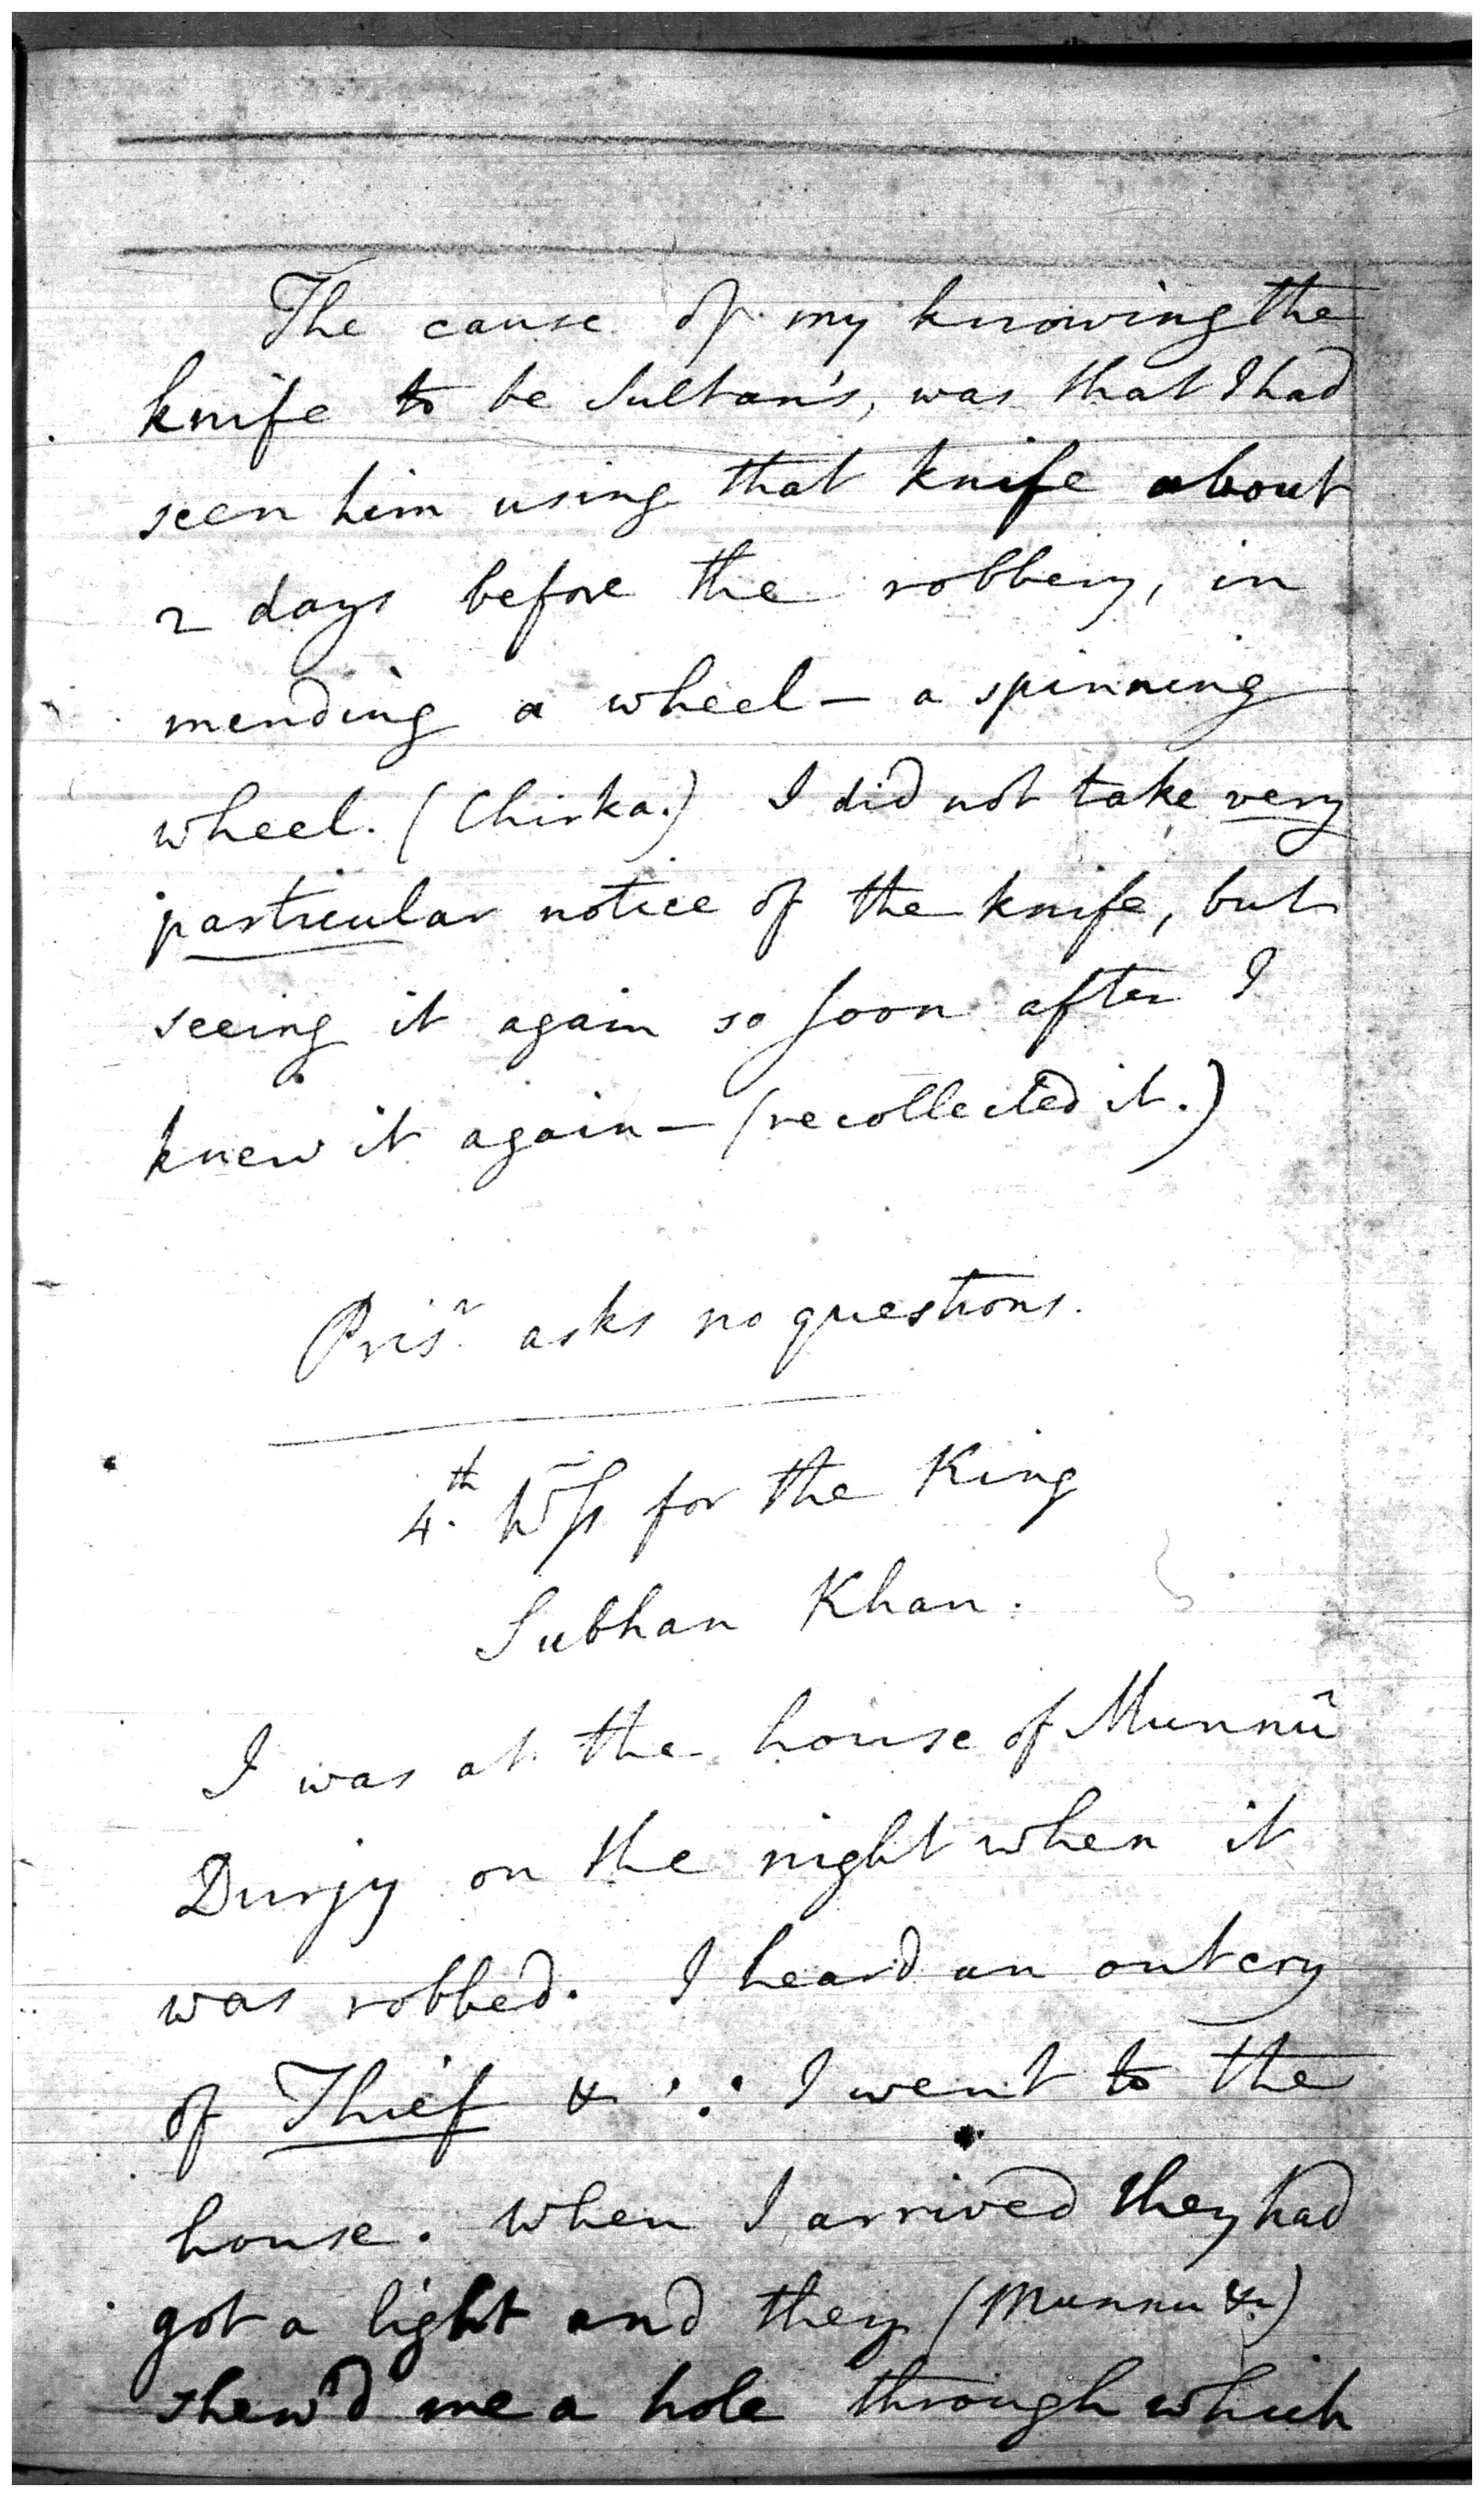 The cause of my knowing the
knife to be Sultan's, was that I had
seen him using that knife about
2 days before the robbery, in
mending a wheel – a spinning
wheel. (Chirka.) I did not take very
particular notice of the knife, but
seeing it again so soon after I
knew it again – (recollected it.)
Prisr. asks no questions.
4th. Wss for the King
Subhan Khan.
I was at the house of Munnū
Durjy on the night when it
was robbed. I heard an outcry
of Thief &c : I went to the
house. When I arrived they had
got a light and they (Munnu &c)
shew'd me a hole through which